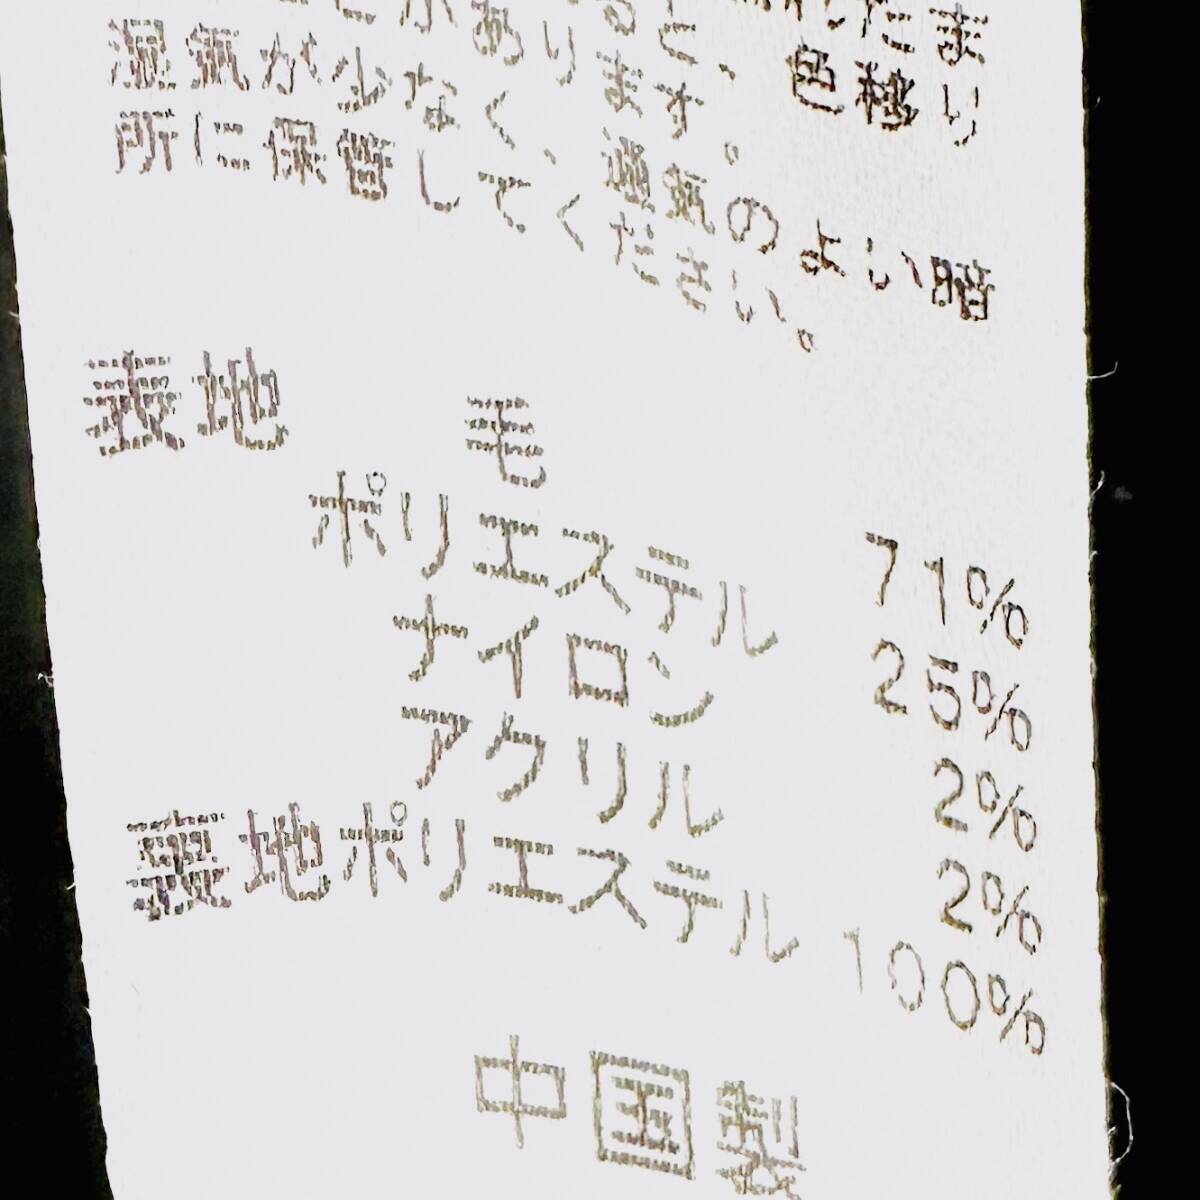 たま
ると、色移り
とがあります。
湿気が少なく、通気のよい暗
所に保管してください。
表地 毛 71%
ポリエステル 25%
ナイロン 2%
アクリル 2%
裏地ポリエステル 100%
中国製